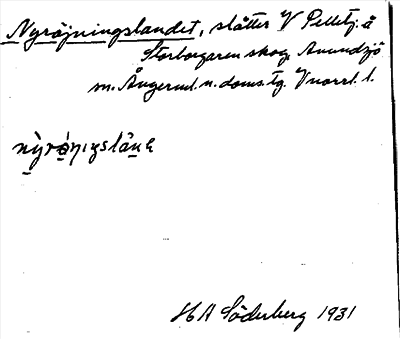 Nyröjningslandet, slåtter V Pelletj. å
Storborgaren skog, Anundsjö
m. Ångerml. n. doms. tg. V norrl. l.
HA Söderberg 1931